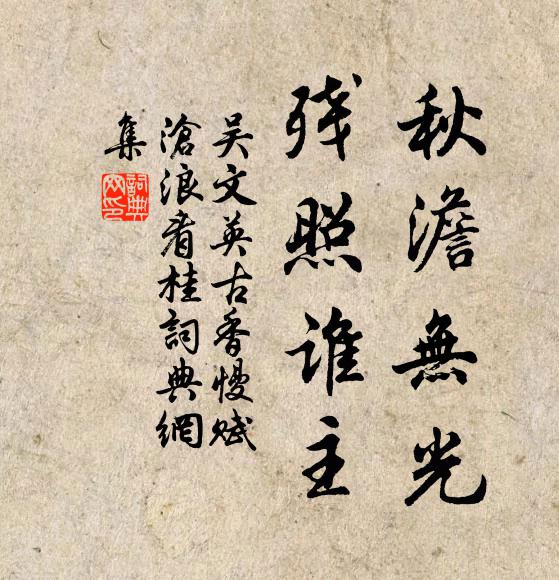 秋澹無光
残照誰主
吴文英古香慢赋
滄浪看桂詞典網
集
詞典網印